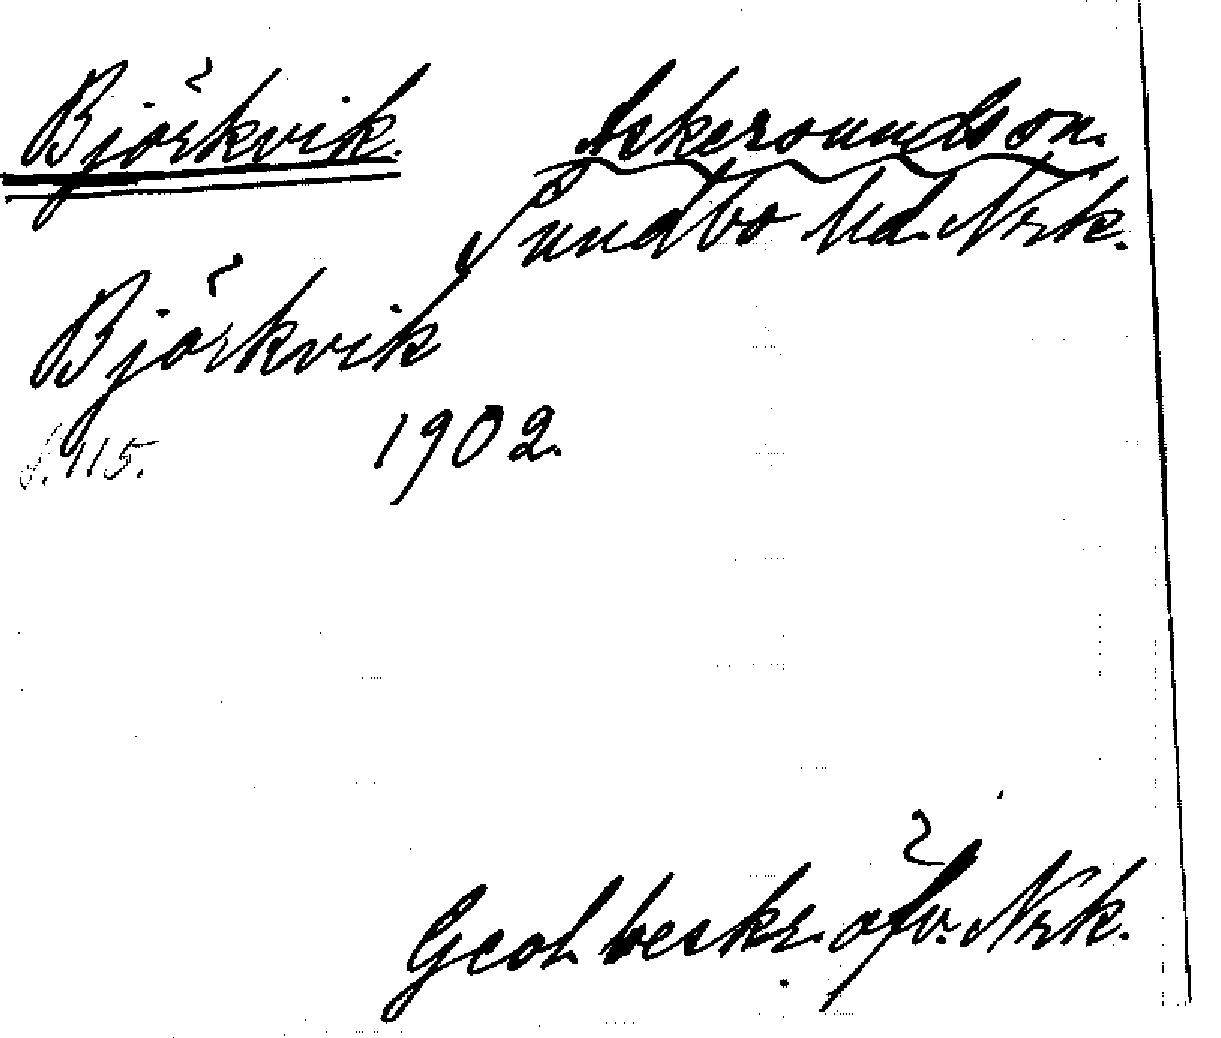 Björkvik. Askersundson.
Sundbo hd. Nrk.
Björkvik
s. 115. 1902.
Geol. beskr. öfv. Nrk.